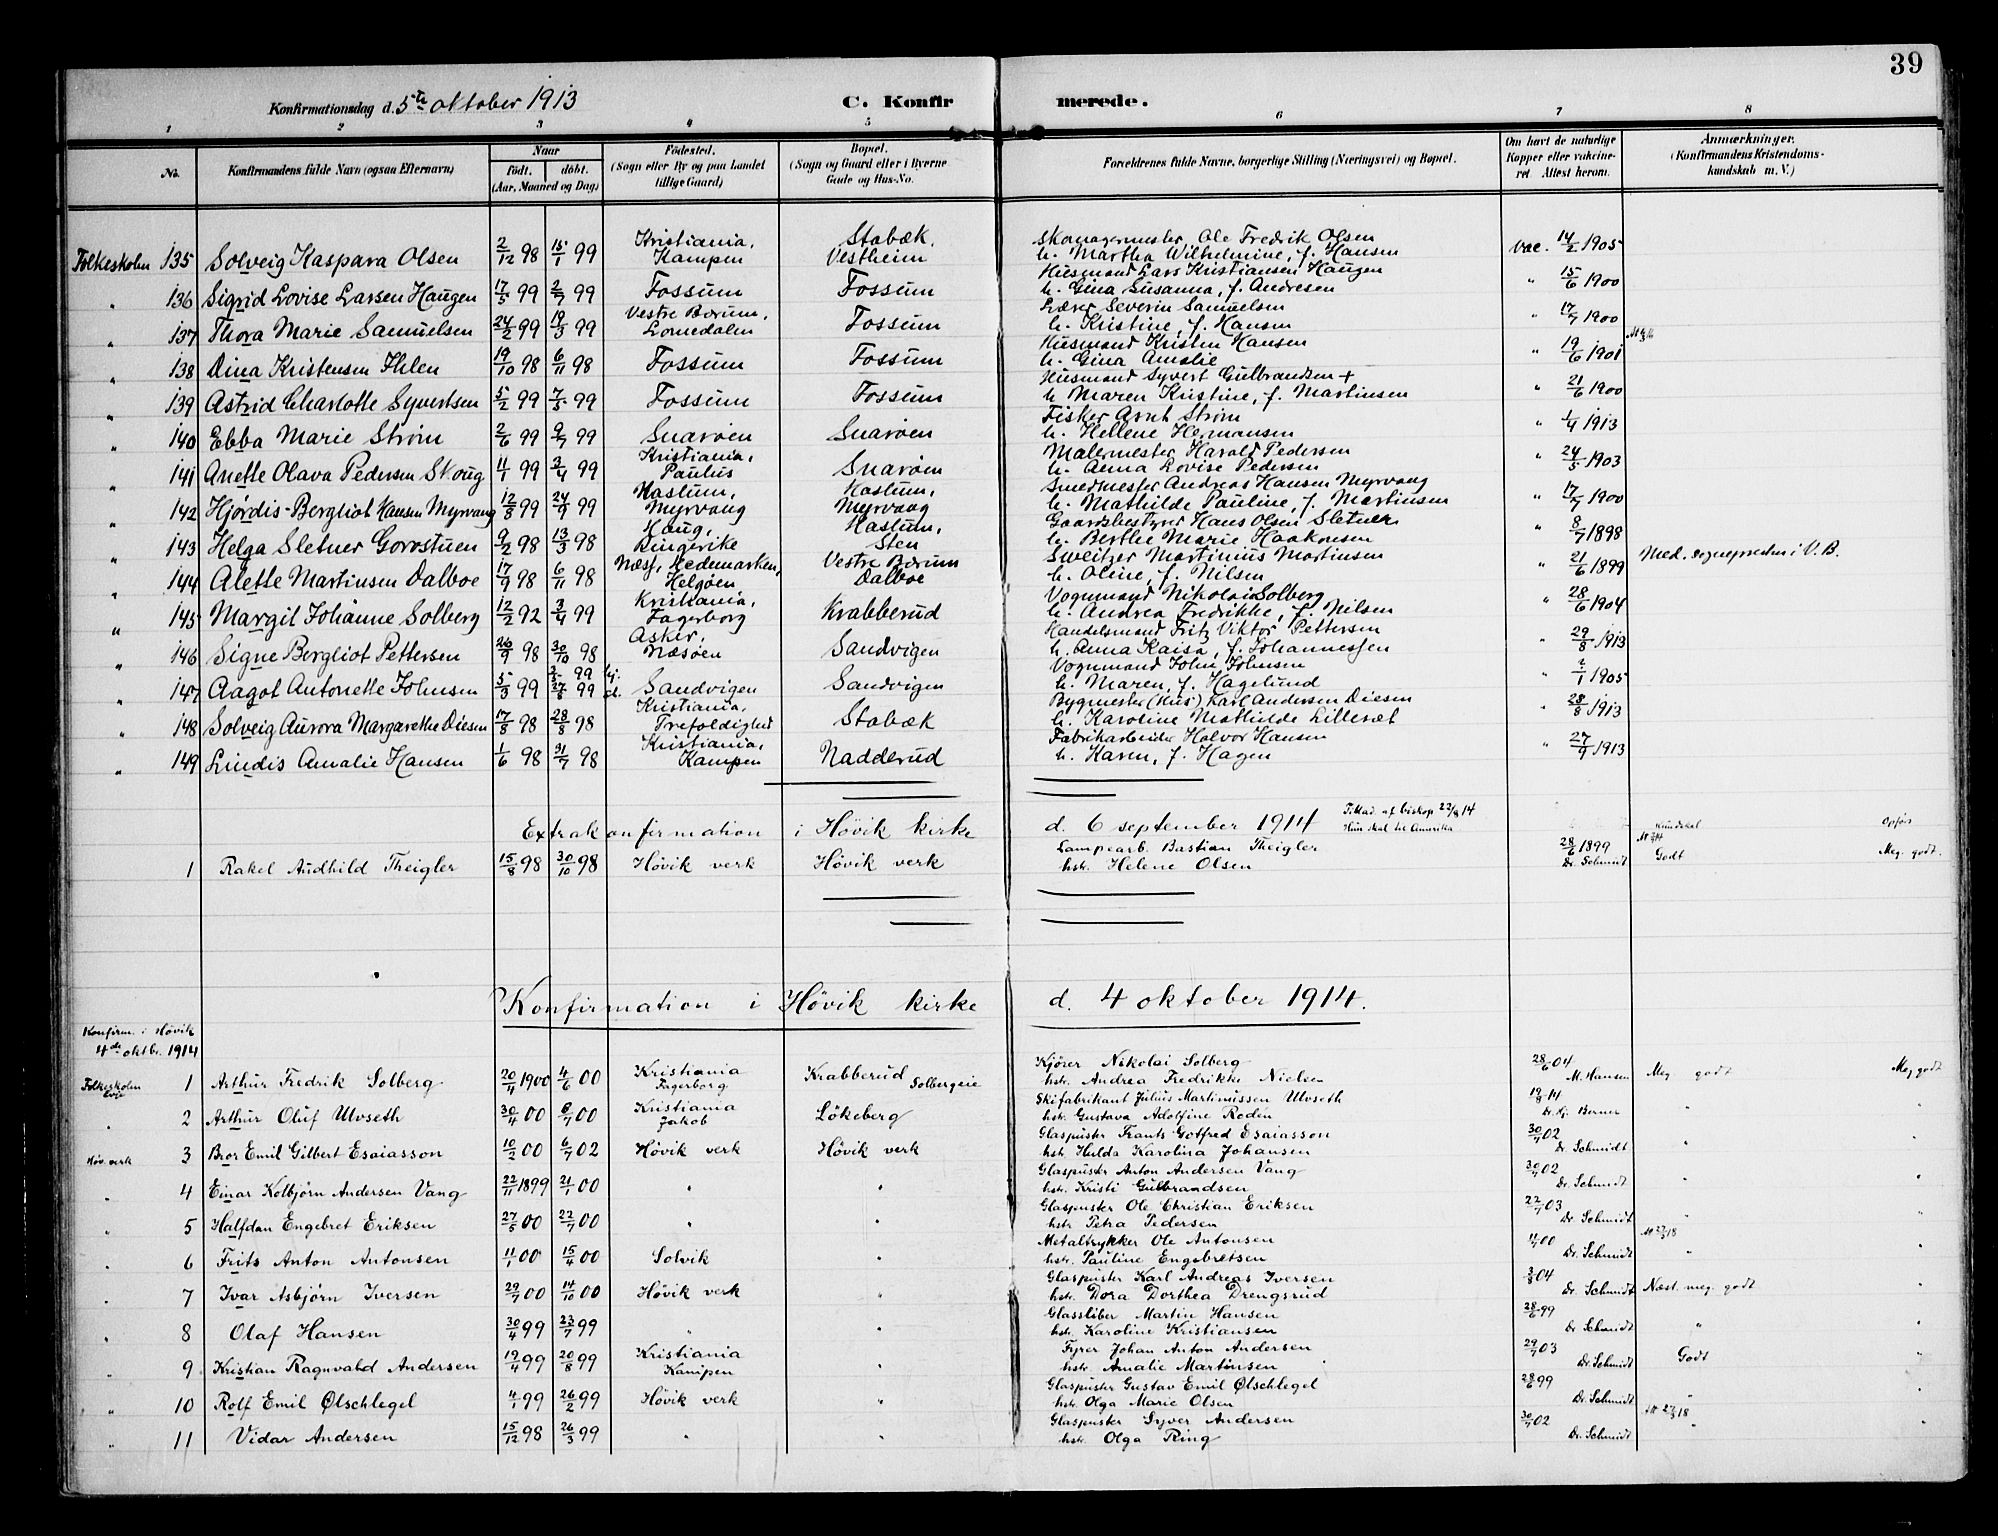 39
Konfirmationsdag d. 5te oktober 1913 C. Konfirmerede.
1 2 3 4 5 6 7 8
No. Konfirmandens fulde Navn (ogsaa Efternavn) Naar födt. döbt. (Aar, Maaned og Dag) Födested. (Sogn eller By og paa Landet tillige Gaard) Bopæl. (Sogn og Gaard eller i Byerne Gade og Hus-No. Forældrenes fulde Navne, borgerlige Stilling (Næringsvei) og Bopæl. Om havt de naturlige Kopper eller vaccineret Attest herom. Anmærkninger. (Konfirmandens Kristendomskundskab m. V.)
Folkeskolen 135 Solveig Kaspara Olsen 2/12 98 15/1 99 Kristiania, Kampen Stabæk, Vestheim Skomagermester, Ole Fredrik Olsen h. Martha Wilhelmine, f. Hansen Vac. 14/2 1905
" 136 Sigrid Lovise Larsen Haugen 17/5 99 2/7 99 Fossum Fossum Husmand Lars Kristiansen Haugen h. Gina Susanna, f. Andresen " 15/6 1900
" 137 Thora Marie Samuelsen 24/2 99 19/3 99 Vestre Bærum, Lomedalen Fossum Lærer Severin Samuelsen h. Kristine, f. Hansen " 17/7 1900
" 138 Dina Kristensen Ihlen 19/10 98 6/11 98 Fossum Fossum Husmand Kristen Hansen h. Gina Amalie " 19/6 1901
" 139 Astrid Charlotte Syvertsen 5/2 99 7/5 99 Fossum Fossum Husmand Syvert Gulbrandsen + h. Maren Kristine, f. Martinsen " 21/6 1900
" 140 Ebba Marie Strøm 2/6 99 9/7 99 Snarøen Snarøen Fisker Arnt Strøm h. Hellene Hermansen " 1/4 1913
" 141 Anette Olava Pedersen Skoug 4/1 99 3/4 99 Kristiania, Paulus Snarøen Malermester Harald Pedersen h. Anna Lovise Pedersen " 24/5 1903
" 142 Hjørdis-Bergliot Hansen Myrvang 12/8 99 24/9 99 Haslum, Myrvang Haslum, Myrvang Smedmester Andreas Hansen Myrvang h. Mathilde Pauline, f. Martinsen " 17/7 1900
" 143 Helga Sletner Gorostuen 9/2 98 13/3 98 Haug, Ringerike Haslum, Sten Gaardsbestyrer Hans Olsen Sletner h. Berthe Marie Haakonsen " 8/7 1898
" 144 Alette Martinsen Dalboe 17/9 98 6/11 98 Næs, Hedemarken, Helgøen Vestre Bærum Dalboe Sweitzer Martinius Martinsen h. Oline, f. Nilsen " 21/6 1899 Med. i V. B.
" 145 Margit Johanne Solberg 12/2 92 3/4 99 Kristiania, Fagerborg Krabberud Vognmand Nikolai Solberg h. Andrea Fredrikke, f. Nilsen " 28/6 1904
" 146 Signe Bergliot Pettersen 26/9 98 30/10 98 Asker, Næsøen Sandvigen Handelsmand Fritz Viktor Pettersen h. Anna Kaisa, f. Johannessen " 29/8 1913
" 147 Aagot Antonette Johnsen 5/3 99 27/8 99 Sandvigen Sandvigen Vognmand John Johnsen h. Maren, f. Hagelund " 2/1 1905
" 148 Solveig Aurora Margarethe Diesen 17/8 98 28/8 98 Kristiania, Trefoldighed Stabæk Bygmester (Hus) Karl Andersen Diesen h. Karoline Mathilde Lilleræt " 28/8 1913
" 149 Lindis Amalie Hansen 1/6 98 31/7 98 Kristiania, Kampen Nadderud Fabrikarbeider Halvor Hansen h. Karen, f. Hagen " 27/9 1913
Extrakonfirmation i Høvik kirke d. 6 september 1914 Tillad af biskop 22/8 14 Hun skal til Amerika
Kundskab Opførs
1 Rakel Audhild Theigler 15/8 98 30/10 98 Høvik verk Høvik verk Lampearb. Bastian Theigler hstr. Helene Olsen 28/6 1899 Dr. Schmidt Godt Meg. godt.
Konfirmation i Høvik kirke d. 4 oktober 1914.
Konfirm. i Høvik
4de oktbr. 1914
Folkeskolen 1 Arthur Fredrik Solberg 20/4 1900 4/6 00 Kristiania Fagerborg Krabberud Solbergeie Kjører Nikolai Solberg hstr. Andrea Fredrikke Nielsen 28/6 04 M. Hansen Meg godt Meg godt
" 2 Arthur Oluf Ulvseth 30/4 00 8/7 00 Kristiania Jakob Løkeberg Skifabrikant Julius Martinussen Ulvseth hstr. Gustava Adolfine Roden 19/8 14 Dr. Kj. Berner " "
Høv. verk 3 Bror Emil Gilbert Esaiasson 10/2 00 6/7 02 Høvik verk Høvik verk Glaspuster Frants Gotfred Esaiasson hstr. Hulda Karolina Johansen 30/7 02 Dr. Schmidt " "
" 4 Einar Kolbjørn Andersen Vang 22/11 1899 21/1 00 " " Glaspuster Anton Andersen Vang hstr. Kristi Gulbrandsen 30/7 02 Dr. Schmidt " "
" 5 Halfdan Engebret Eriksen 27/5 00 22/7 00 " " Glaspuster Ole Christian Eriksen hstr. Petra Pedersen 22/7 03 Dr. Schmidt " "
" 6 Frits Anton Antonsen 11/1 00 15/4 00 Solvik " Metaltrykker Ole Antonsen hstr. Pauline Engebretsen 4/7 00 Dr. Schmidt " "
" 7 Ivar Asbjørn Iversen 29/7 00 14/10 00 Høvik verk " Glaspuster Karl Andreas Iversen hstr. Dora Dorthea Drengsrud 3/8 04 Dr. Schmidt Næst. meg. godt "
" 8 Olaf Hansen 30/4 99 23/7 99 " " Glassliber Martin Hansen hstr. Karoline Kristiansen 28/6 99 Dr. Schmidt " "
" 9 Kristian Ragnvald Andersen 19/4 99 20/8 99 Kristiania Kampen " Fyrer Johan Anton Andersen hstr. Amalie Martinsen 29/7 03 Dr. Schmidt Godt "
" 10 Rolf Emil Ølschlegel 4/1 99 26/2 99 Høvik verk " Glaspuster Gustav Emil Ølschlegel hstr. Olga Marie Olsen 28/6 99 Dr. Schmidt " "
" 11 Vidar Andersen 15/12 98 26/3 99 " " Glaspuster Syver Andersen hstr. Olga Ring 30/7 02 Dr. Schmidt " "